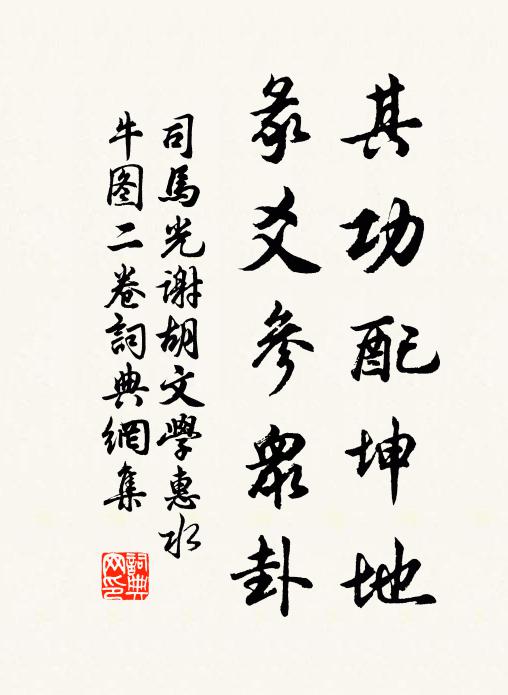 其功配坤地
彖爻參衆卦
司馬光謝胡文學惠水
牛图二卷詞典網集
詞典網印